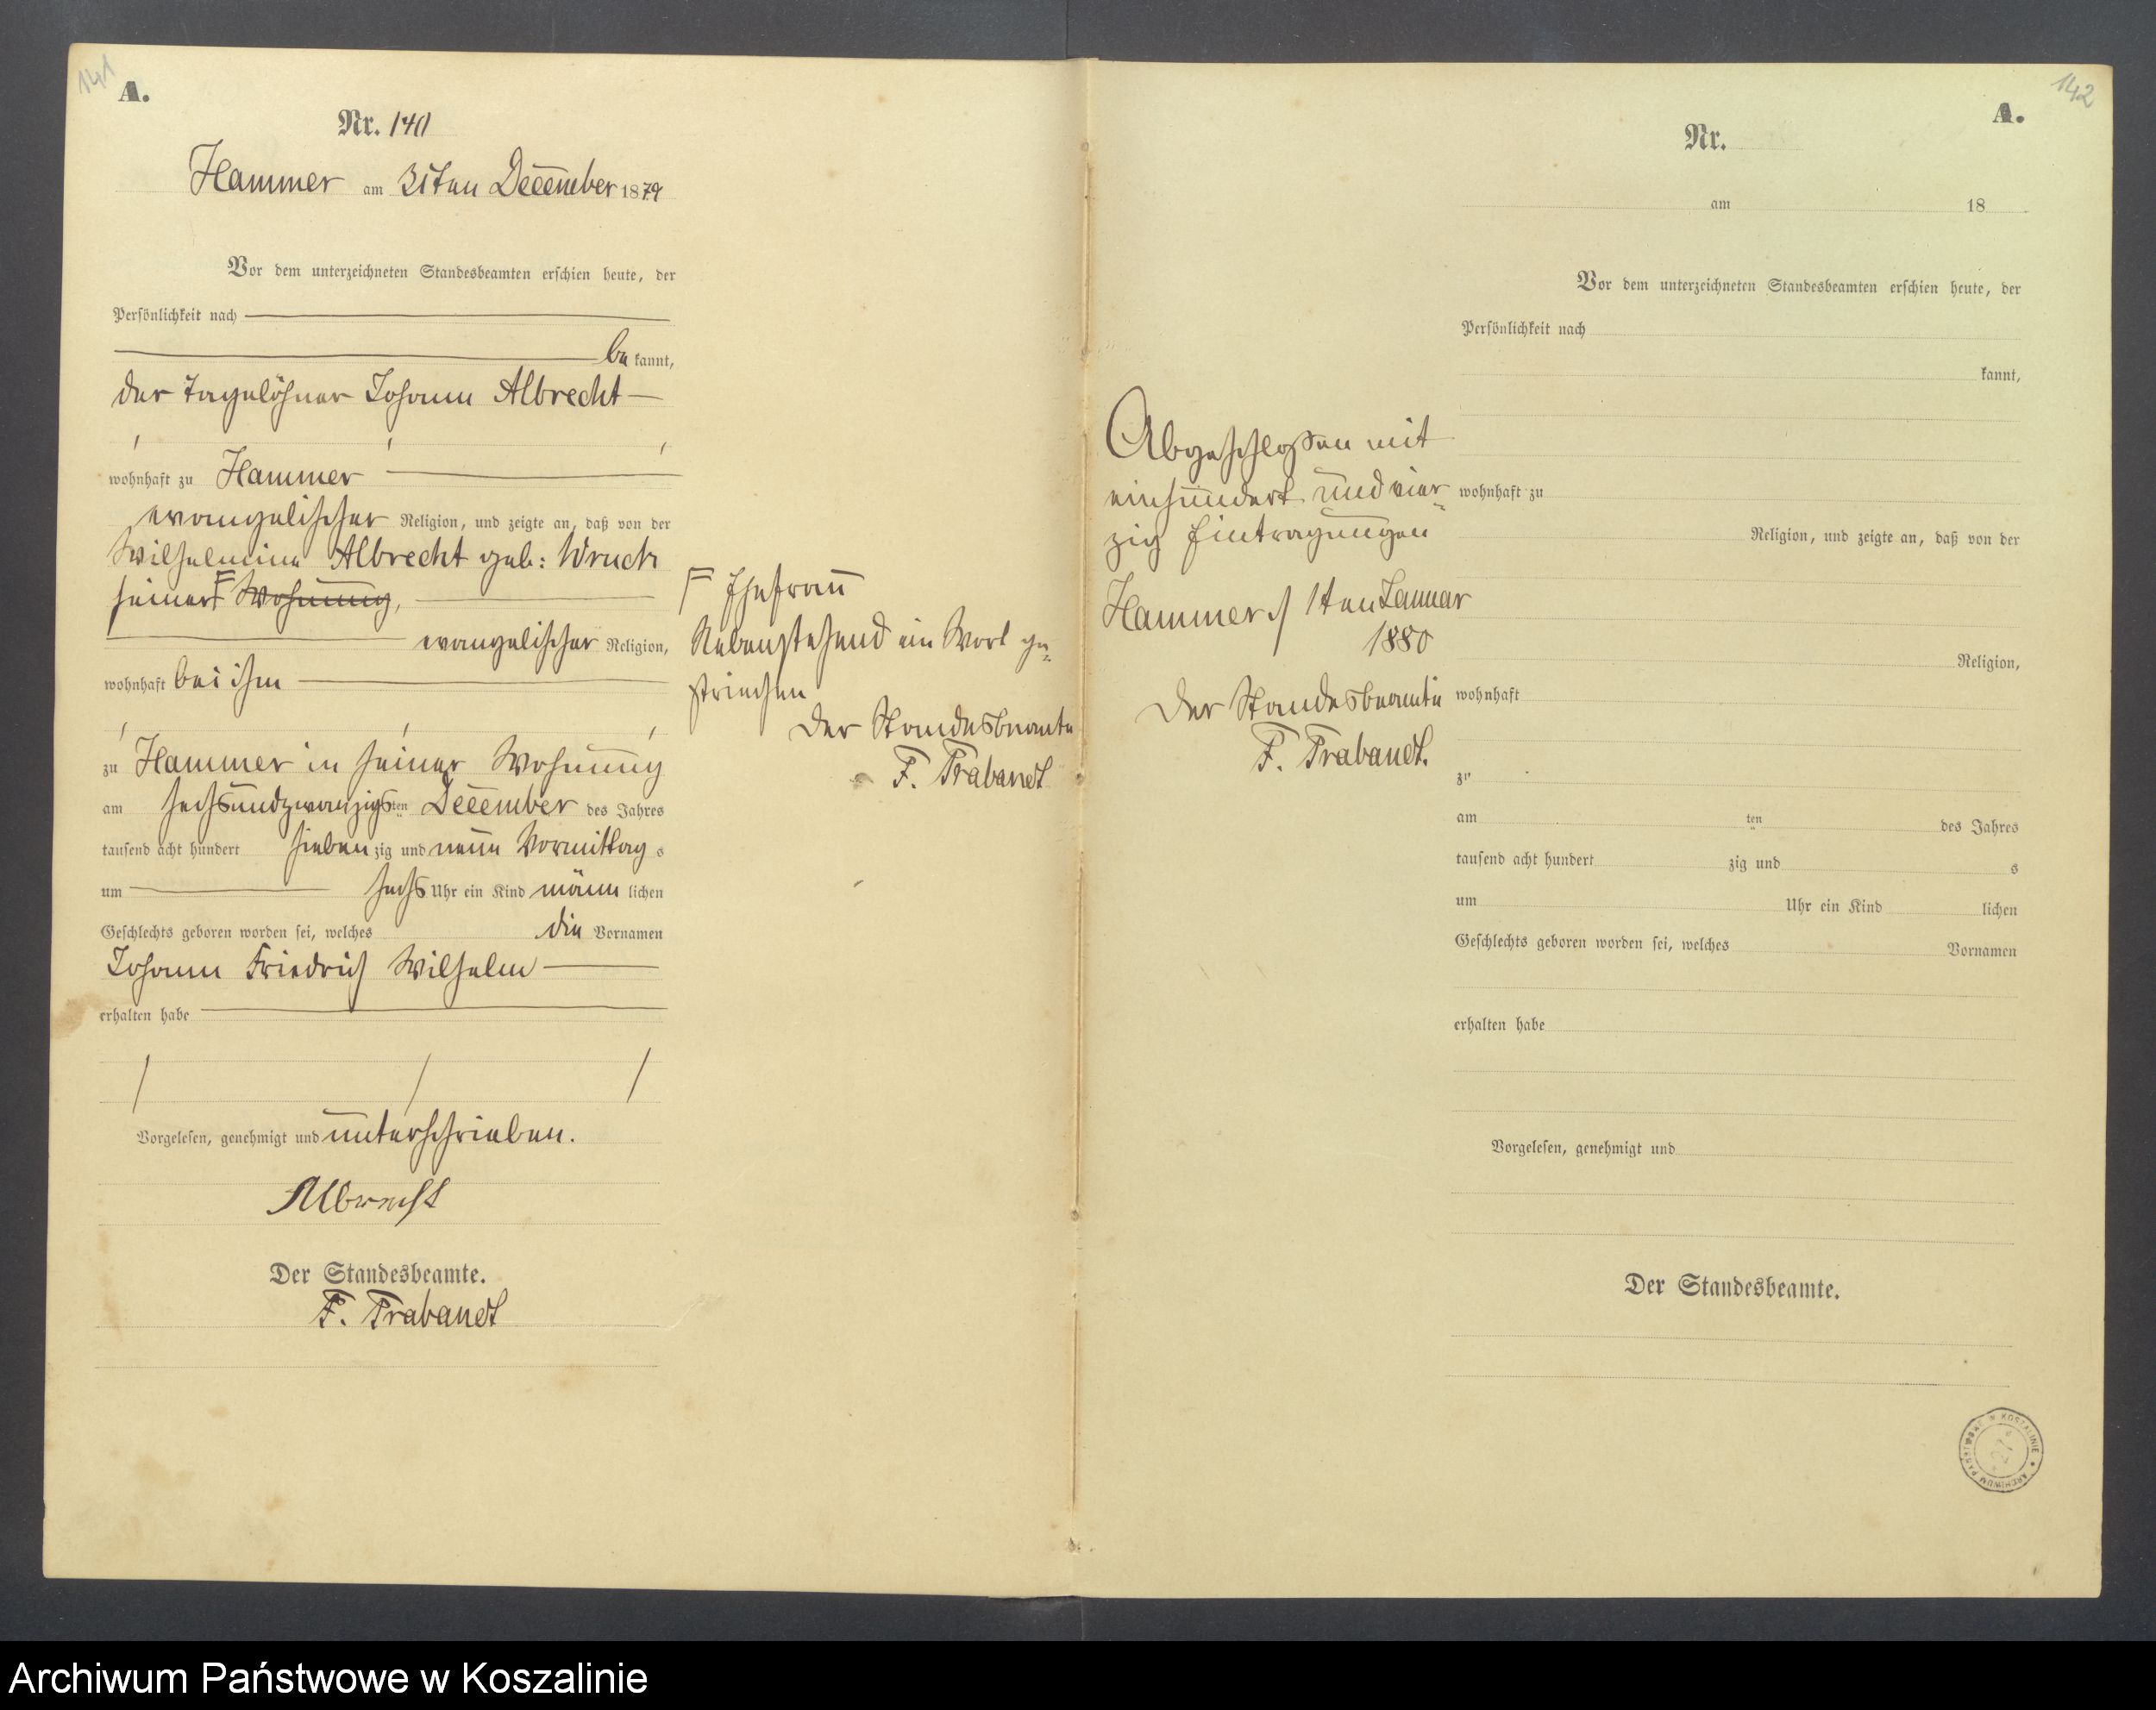 141
A.
Nr. 140
Hammer am 31ten December 1879
Vor dem unterzeichneten Standesbeamten erschien heute, der
Persönlichkeit nach
be kannt,
der Tagelöhner Johann Albrecht
wohnhaft zu Hammer
evangelischer Religion, und zeigte an, daß von der
Wilhelmine Albrecht geb: Wruck
seiner F Wohnung,
evangelischer Religion,
wohnhaft bei ihm
zu Hammer in seiner Wohnung
am sechsundzwanzigsten December des Jahres
tausend acht hundert sieben zig und neun Vormittag s
um sechs Uhr ein Kind männ lichen
Geschlechts geboren worden sei, welches die Vornamen
Johann Friedrich Wilhelm
erhalten habe
Vorgelesen, genehmigt und unterschrieben.
Albrecht
Der Standesbeamte.
F. Trabandt
F Ehefrau
Nebenstehend ein Wort ge=
strichen
Der Standesbeamte
F. Trabandt
Abgeschlossen mit
einhundert und vier=
zig Eintragungen
Hammer d 1ten Januar
1880
Der Standesbeamte
F. Trabandt.
142
A.
Nr.
am 18
Vor dem unterzeichneten Standesbeamten erschien heute, der
Persönlichkeit nach
kannt,
wohnhaft zu
Religion, und zeigte an, daß von der
Religion,
wohnhaft
zu
am ten des Jahres
tausend acht hundert zig und s
um Uhr ein Kind lichen
Geschlechts geboren worden sei, welches Vornamen
erhalten habe
Vorgelesen, genehmigt und
Der Standesbeamte.
ARCHIWUM PAŃSTWOWE W KOSZALINIE
Archiwum Państwowe w Koszalinie